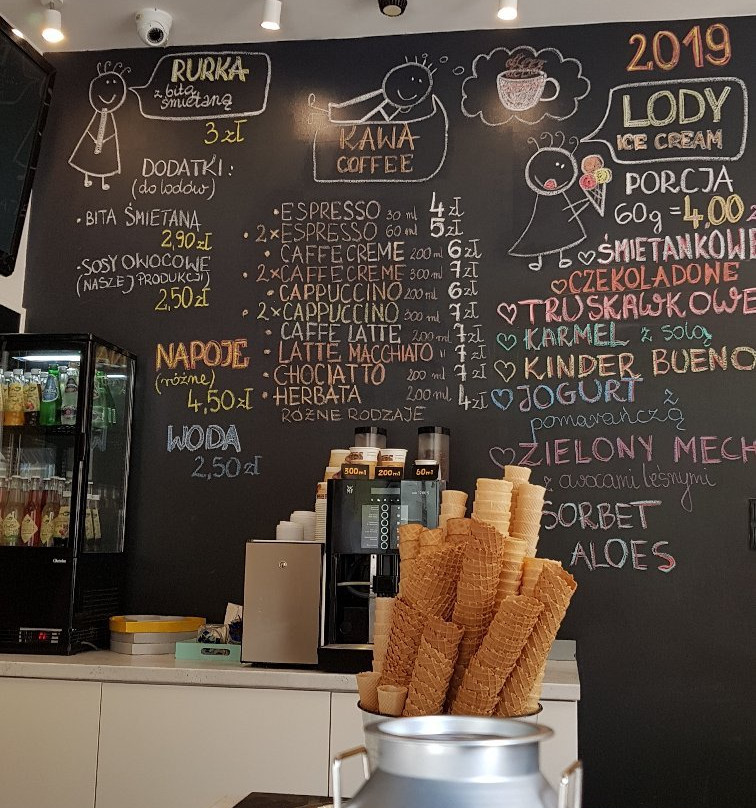 RURKA
z bitą
śmietaną
3 zł
DODATKI:
(do lodów)
• BITA ŚMIETANA
2,90 zł
• SOSY OWOCOWE
(NASZEJ PRODUKCJI)
2,50 zł
NAPOJE
(różne)
4,50 zł
WODA
2,50 zł
KAWA
COFFEE
• ESPRESSO 30 ml 4 zł
• 2× ESPRESSO 60 ml 5 zł
• CAFFE CREME 200 ml 6 zł
• 2× CAFFE CREME 300 ml 7 zł
• CAPPUCCINO 200 ml 6 zł
• 2× CAPPUCCINO 300 ml 7 zł
• CAFFE LATTE 200 ml 7 zł
• LATTE MACCHIATO " 7 zł
• CHOCIATTO 200 ml 7 zł
• HERBATA 200 ml 4 zł
RÓŻNE RODZAJE
2019
LODY
ICE CREAM
PORCJA
60g = 4,00
ŚMIETANKOWE
CZEKOLADONE
TRUSKAWKOWE
KARMEL z solą
KINDER BUENO
JOGURT z
pomarańczą
ZIELONY MECH
z owocami leśnymi
SORBET
ALOES
300ml
200ml
60ml